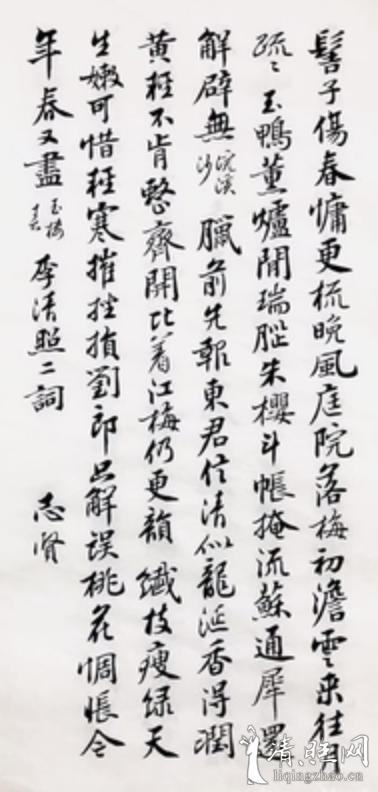 髻子傷春慵更梳晚風庭院落梅初澹雲来往月
疏〻玉鴨薰爐閒瑞腦朱櫻斗帳掩流蘇通犀還
解辟無浣溪沙臘前先報東君信清似龍涎香得潤
黄輕不肯整齊開比着江梅仍更韻纖枝瘦绿天
生嫩可惜輕寒摧挫損劉郎只解誤桃花惆悵今
年春又盡玉楼春李清照二詞 志贤
清照网
liqingzhao.cn